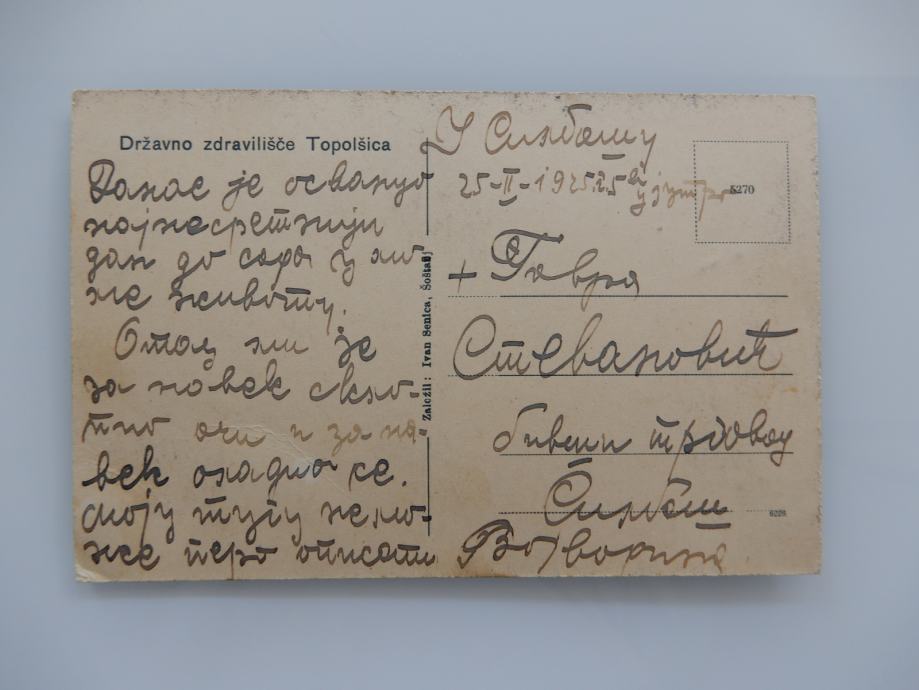 Državno zdravilišče Topolšica
Данас је освануо
најнесретнији
дан до сада у мо-
ме животу.
Отац ми је
за навек скло-
пио очи и за на-
век оладио се.
моју тугу не мо-
же перо описати
Založil: Ivan Senica, Šoštanj
У Силбашу
25-II-1925
ујутро
5270
+ Гавра
Стевановић
бивши трговац
Силбаш
6226
Војводина